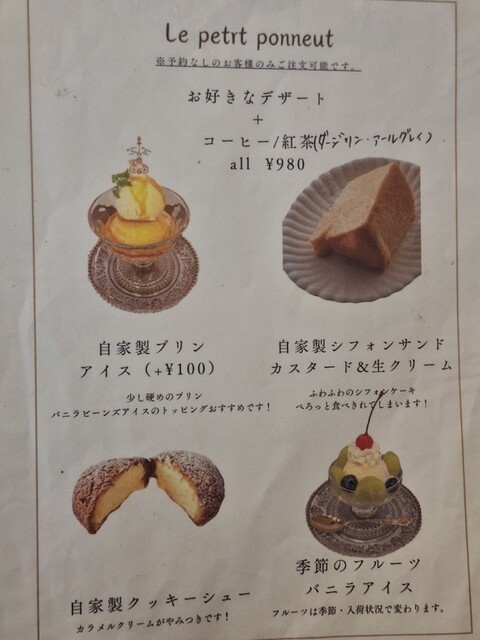 Le petrt ponneut
※予約なしのお客様のみご注文可能です。
お好きなデザート
+
コーヒー/紅茶(ダージリン・アールグレイ)
all ¥980
自家製プリン
アイス (+¥100)
少し硬めのプリン
バニラビーンズアイスのトッピングおすすめです!
自家製シフォンサンド
カスタード&生クリーム
ふわふわのシフォンケーキ
ぺろっと食べきれてしまいます!
自家製クッキーシュー
カラメルクリームがやみつきです!
季節のフルーツ
バニラアイス
フルーツは季節・入荷状況で変わります。